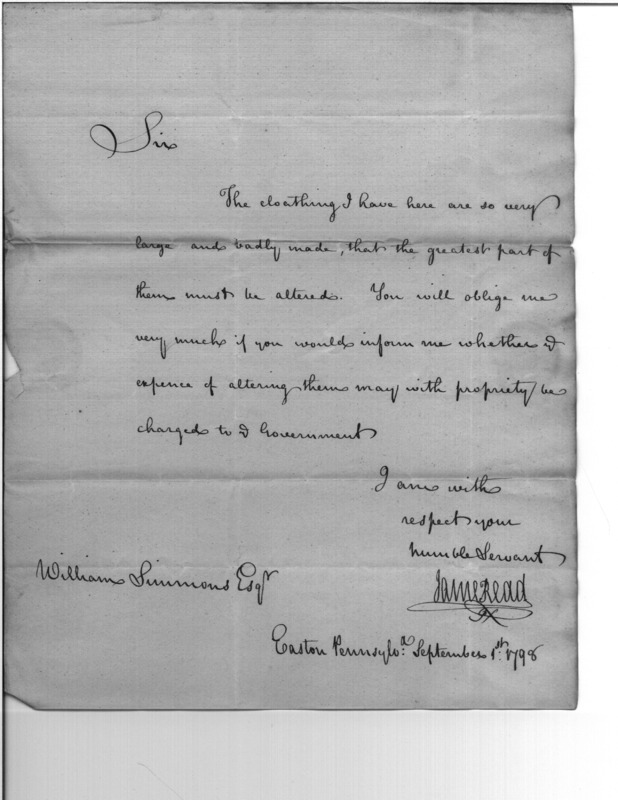 Sir
The cloathing I have here are so very
large and badly made, that the greatest part of
them must be altered. You will oblige me
very much if you would inform me whether ye
expence of altering them may with propriety be
charged to ye Government
I am with
respect your
humble Servant
James Read
William Simmons Esqr
Easton Pennsylva. September 1st. 1798